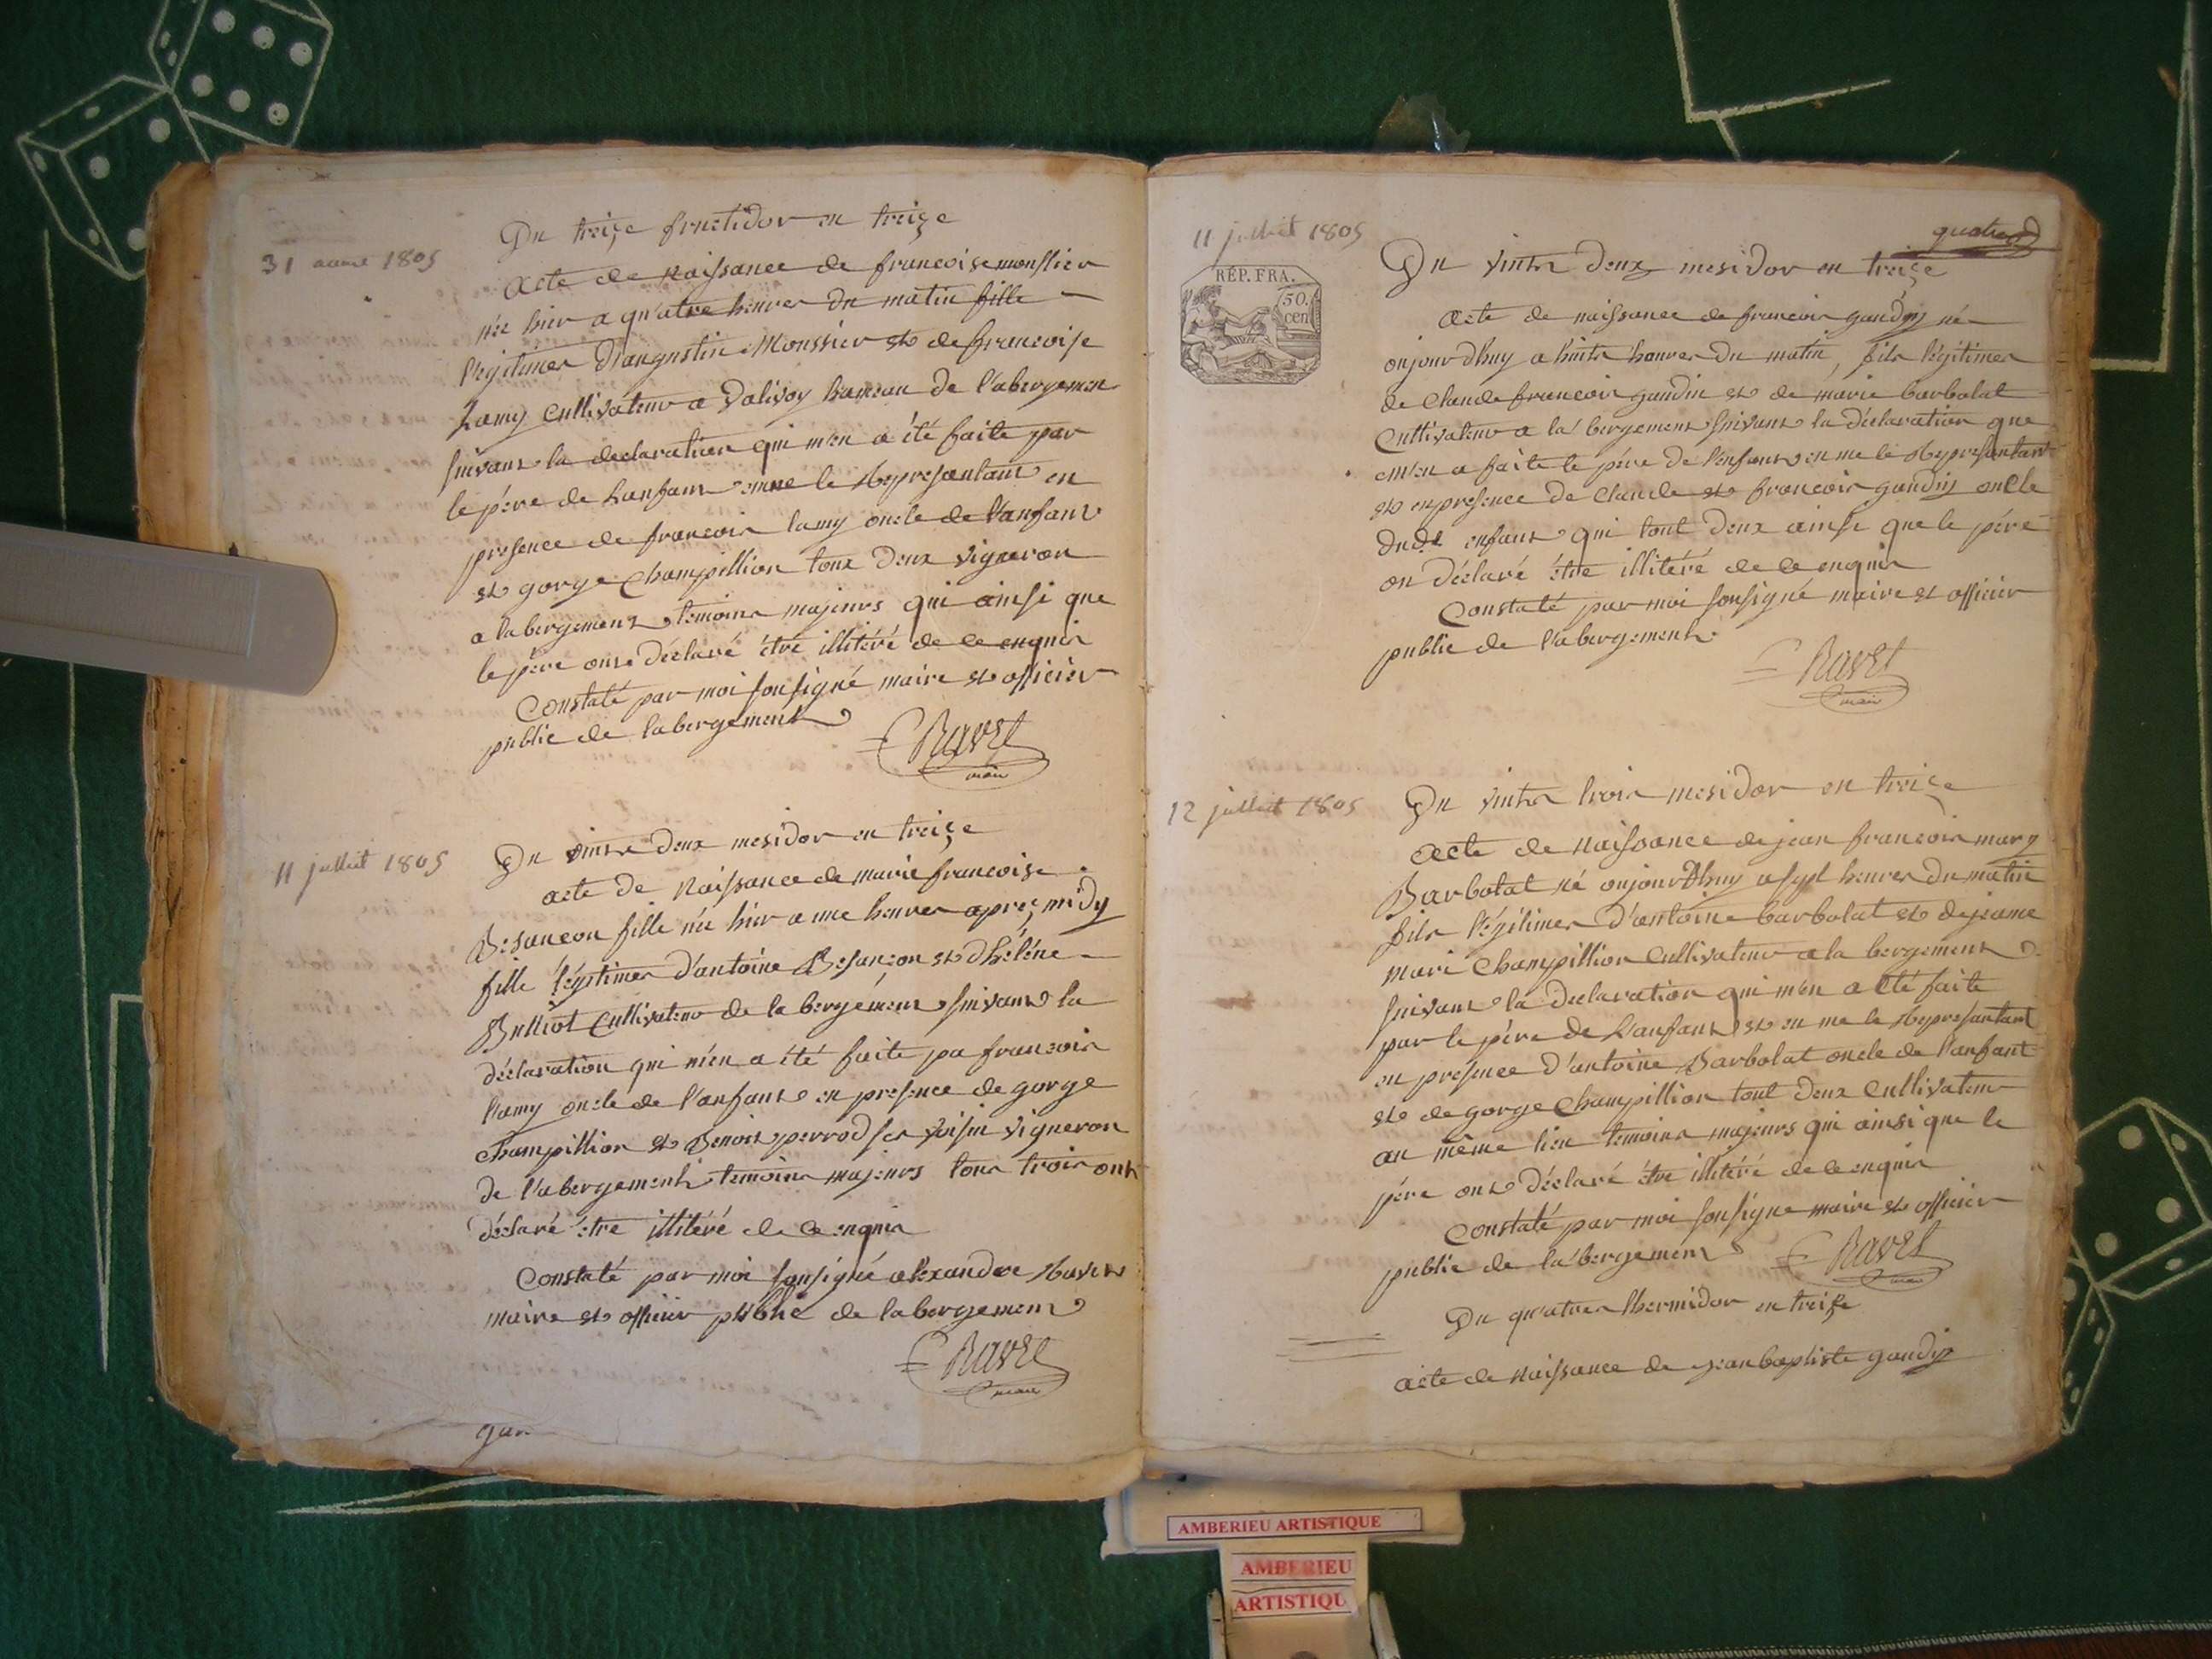 31 aout 1805
Du treize fructidor en treize
acte de naissance de francoise monssier
née hier a quatre heures du matin fille
légitimes d'augustin Monssier et de francoise
Lamy cultivateur a Dalivoy hameau de l'abergemen
suivant la declaration qui m'en a été faite par
le pére de Lanfant en me le Represantant en
presence de francois lamy oncle de l'anfant
et gorge Champillion tous deux vigneron
a labergement temoins majeurs qui ainsi que
le pére ont déclaré étre illitéré de ce enquis
Constaté par moi sousigné maire et officier
public de labergement
Ravet
maire
11 juillet 1805
Du vints deux mesidor en treize
acte de Naissance de marie francoise
Besancon fille née hier a une heures aprez midy
fille légitimes d'antoine Besancon et d'héléne
Bulliot Cultivateur de la bergément suivant la
déclaration qui m'en a été faite pa francois
l'amy oncle de l'anfant en presence de gorge
champillion et Benoit perrod ses voisin vigneron
de l'abergement temoins majeurs tous trois ont
déclaré étre illitéré de ce enquis
Constaté par moi sousigné alexandre Ravet
maire et officier publie de labergement
Ravet
maire
gau
11 juillet 1805
RÉP. FRA.
50.
cen
Du vints deux mesidor en treize
acte de naissance de francois gaudin né
oujourdhuy a huits houres du matin, fils légitimes
de Claude francois gaudin et de marie barbolat
Cultivateur a la bergement suivant la déclaration que
em'en a faite le pére de l'enfant en me le Represantant
et en presence de Claude et francois gaudin oncle
dudt enfant qui tout deux ainsi que le pére
on déclaré étre illitéré de ce enquis
Constaté par moi sousigné maire et officier
public de l'abergement
Ravet
maire
12 juillet 1805
Du vints trois mesidor en treize
acte de naissance de jean francois mary
Barbolat né oujourdhuy a sept heures du matin
fils légitimes d'antoine barbolat et de jeanne
mari Champillion Cultivateur a la bergement
suivant la declaration qui m'en a été faite
par le pére de Lanfant et en me le Represantant
en presence d'antoine Barbolat oncle de l'anfant
et de gorge Champillion tout deux cultivateur
au méme lieu temoins majeurs qui ainsi que le
pére ont déclaré étre illitéré de ce enquis
Constaté par moi sousigne maire et officier
public de la bergement
Ravet
maire
Du quatres thermidor en treize
acte de naissance de jean baptiste gaudin
AMBERIEU ARTISTIQUE
AMBERIEU
ARTISTIQU